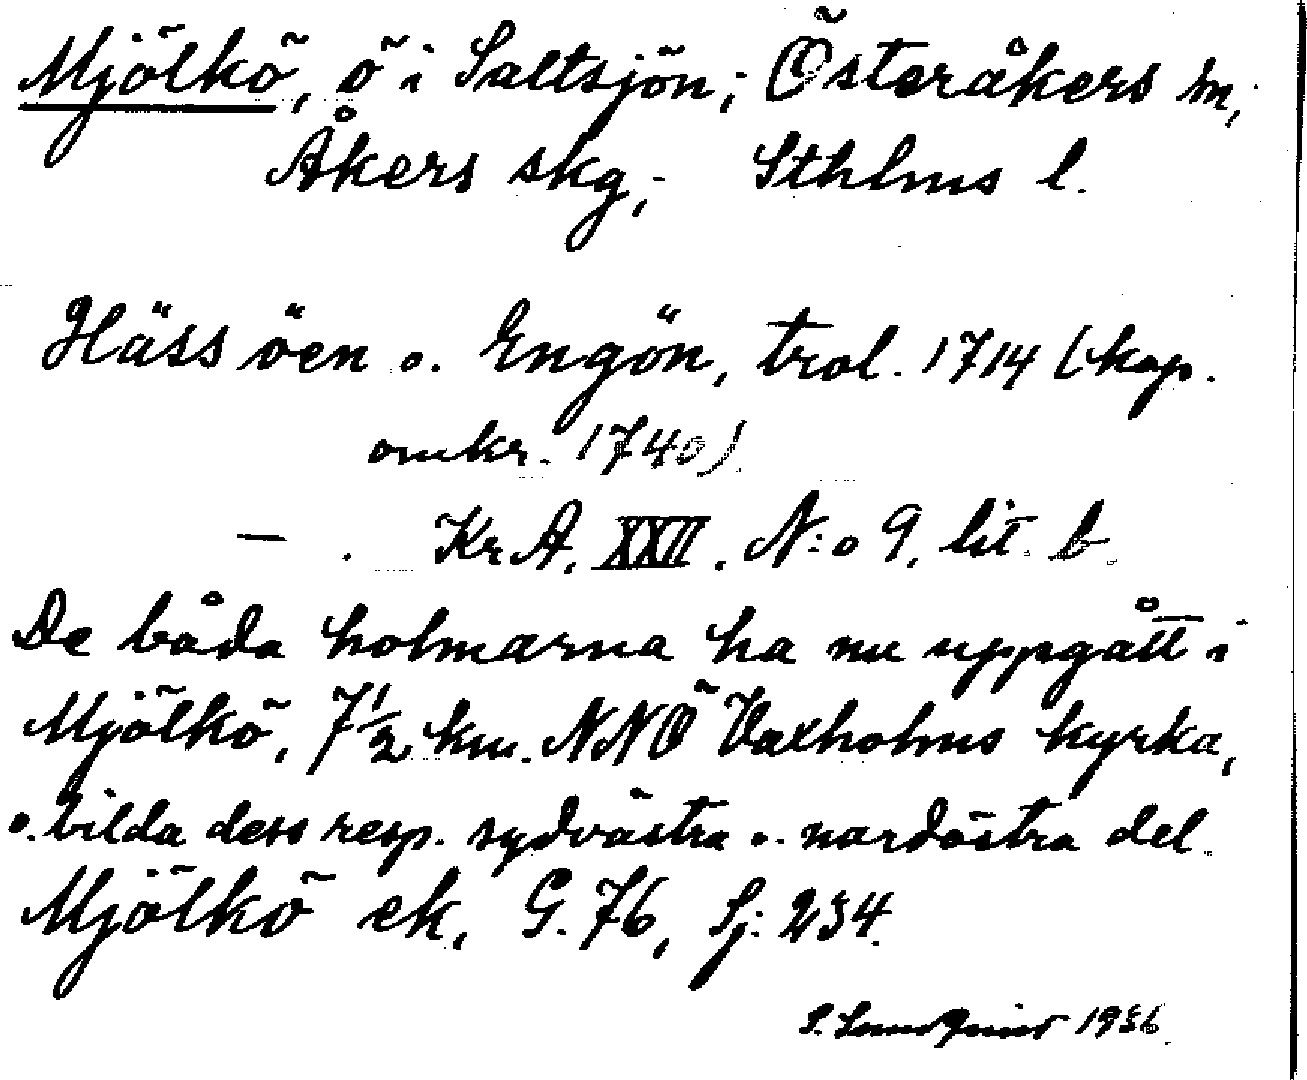 Mjölkö, ö i Saltsjön; Österåkers sn,
Åkers skg, - Sthlms l.
Häss öen o. Engön, trol. 1714 (kop.
omkr. 1740)
— . KrA. XXII. N:o 9. lit. b
De båda holmarna ha nu uppgått i
Mjölkö, 7½ km. NNÖ Vaxholms kyrka,
o. bilda dess resp. sydvästra o. nordöstra del.
Mjölkö ek. G. 76, Sj: 234.
S. Lundquist 1936